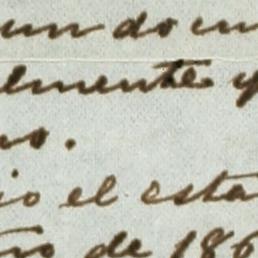 un do
lmente y
os.
io el esta
de 186